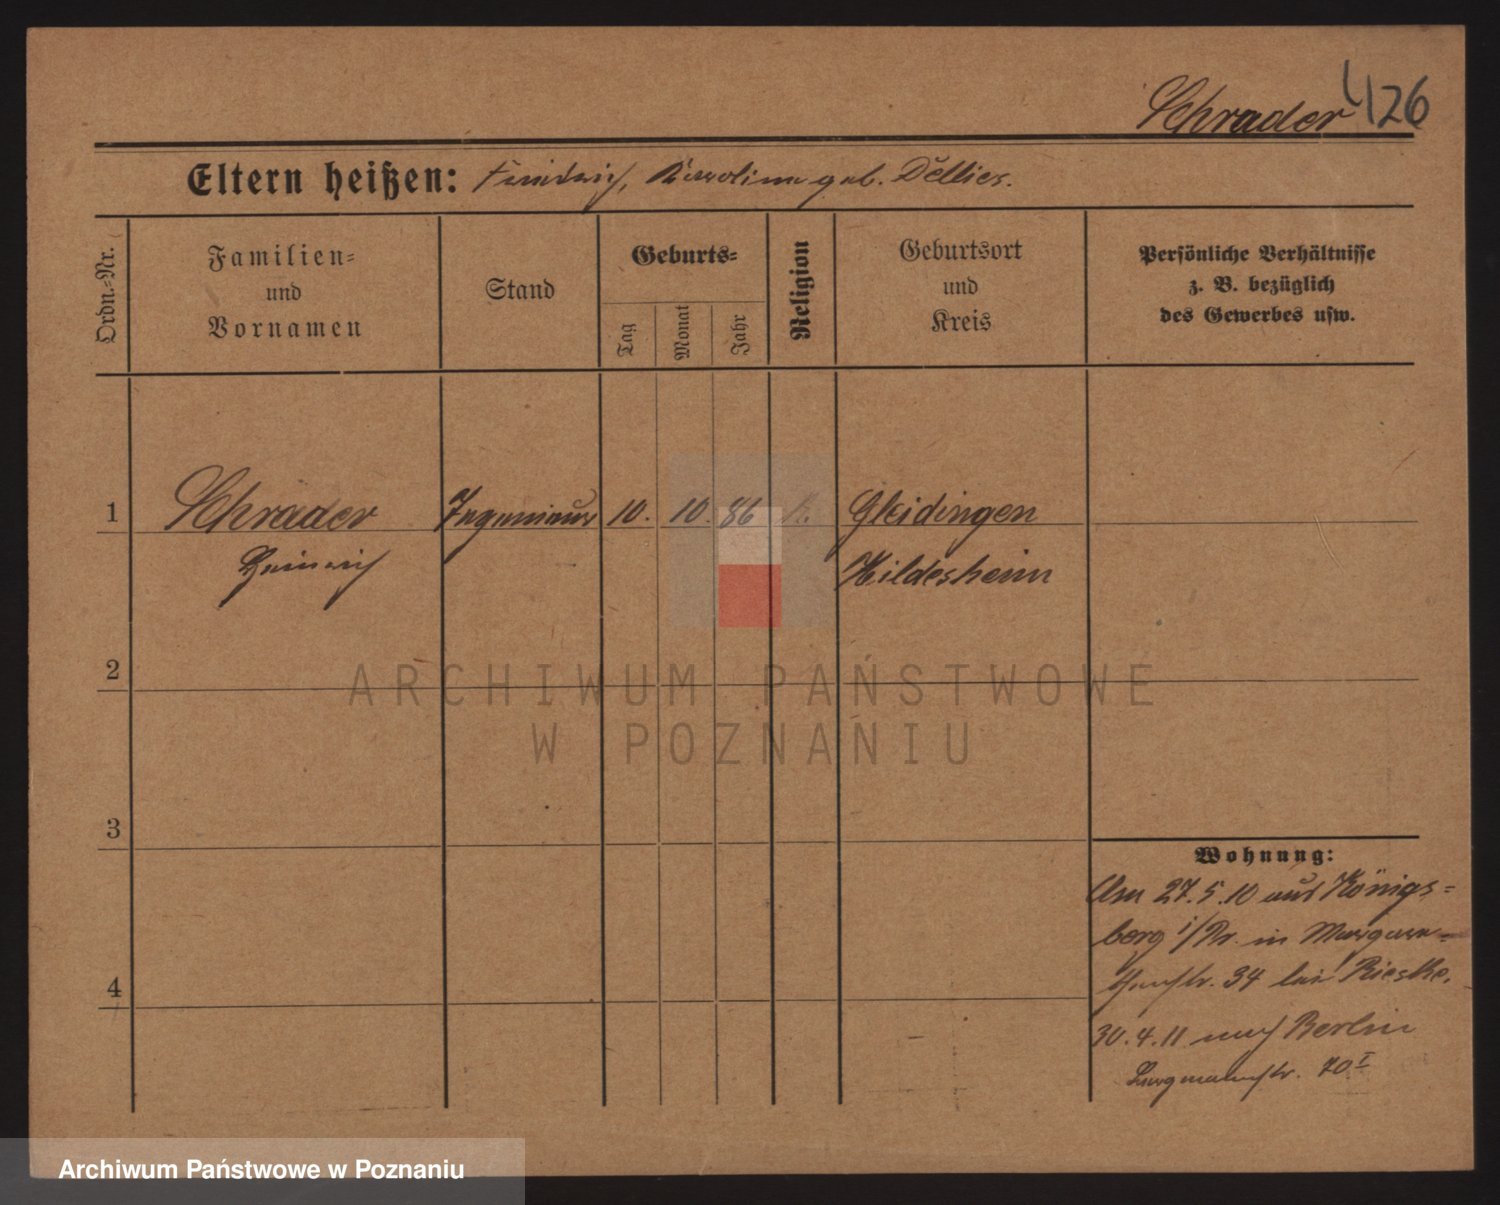 Schrader 126
Eltern heißen: Friedrich, Karoline geb. Dellies.
Ordn.-Nr.
Familien-
und
Vornamen
Stand
Geburts-
Tag
Monat
Jahr
Religion
Geburtsort
und
Kreis
Persönliche Verhältnisse
z. B. bezüglich
des Gewerbes usw.
1 Schrader Ingenieur 10. 10. 86 k. Gleidingen
Heinrich Hildesheim
2
3
4
Wohnung:
Am 27.5.10 aus Königs-
berg i/Pr. in Margare-
thenstr. 34 bei Rieske.
30.4.11 nach Berlin
70 I
ARCHIWUM PAŃSTWOWE
W POZNANIU
Archiwum Państwowe w Poznaniu